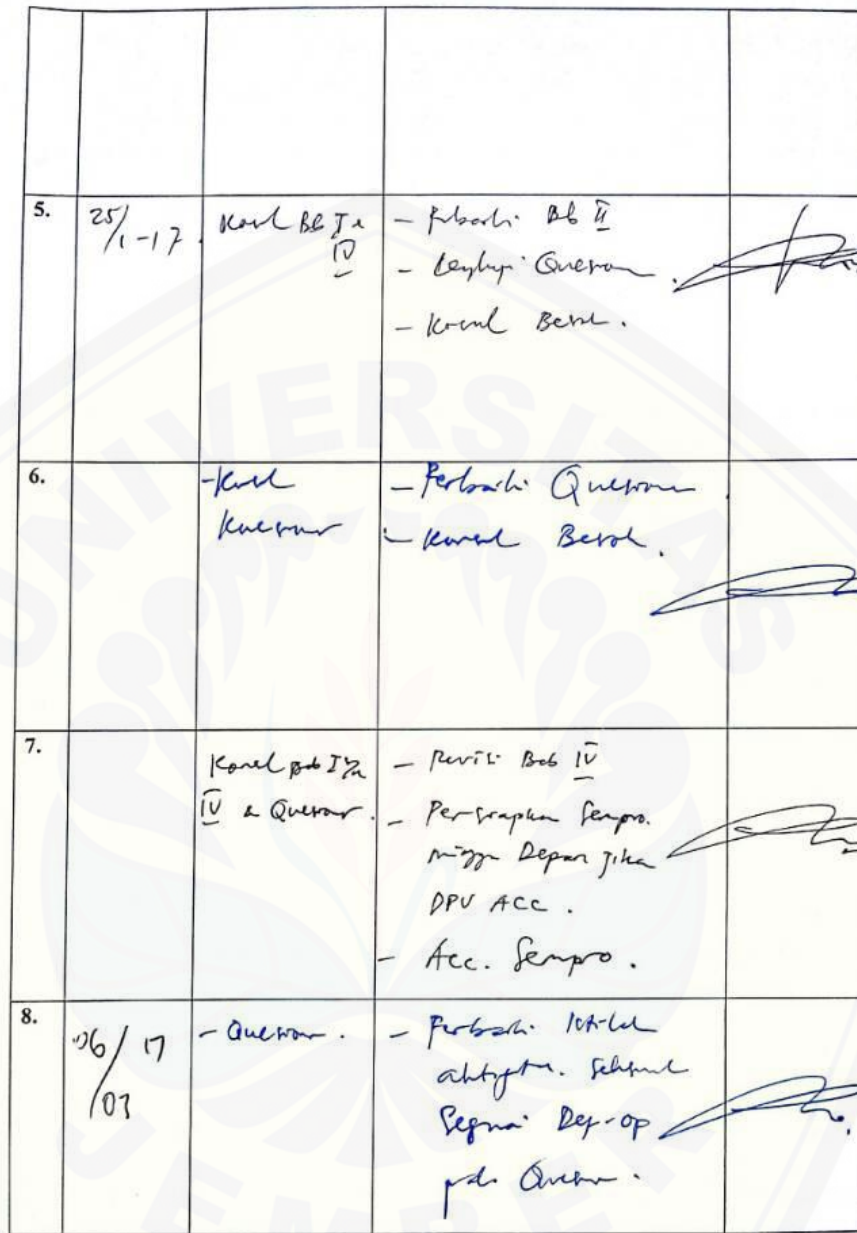 5.
25/1-17
Konsul Bab I &
IV
- Perbaiki Bab II
- Lengkapi Quesioner.
- Konsul Besok.
6.
- Konsul
Kuesioner
- Perbaiki Quesioner
- Konsul Besok.
7.
Konsul Bab
IV & Quesioner.
- Revisi Bab IV
- Persiapkan Sempro.
minggu Depan jika
DPU ACC.
- Acc. Sempro.
8.
06/03 17
- Quesioner.
- Perbaiki
Seksual
Sesuai Def-op
pada Quesioner.
UNIVERSITAS
JEMBER